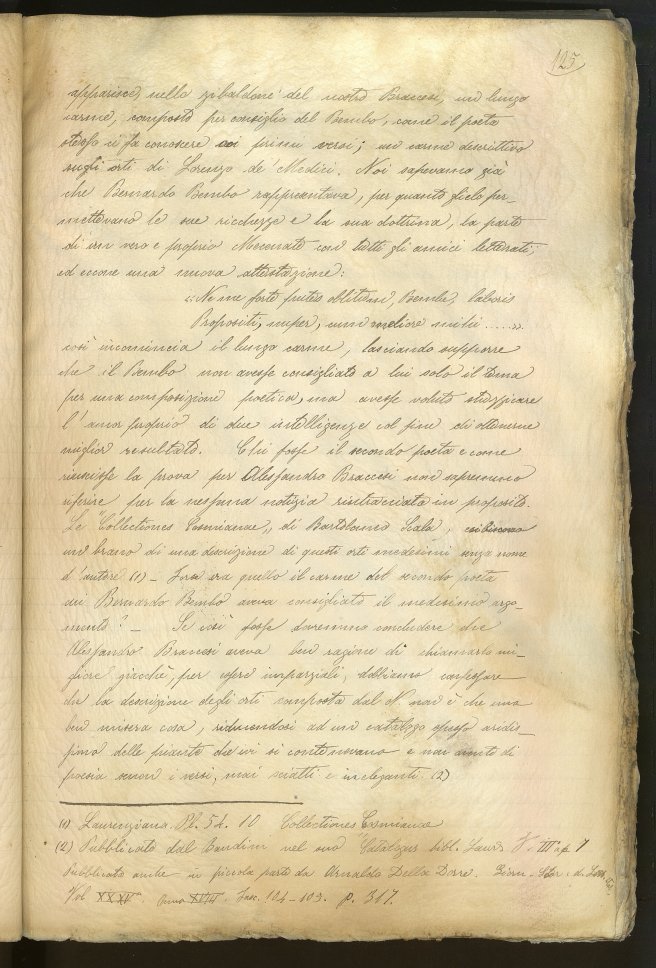 125
apparisce, nello zibaldone del nostro Bracesi, un lungo
carme, composto per consiglio del Bembo, come il poeta
stesso ci fa conoscere coi primi versi; un carme descrittivo
sugli orti di Lorenzo de' Medici. Noi sapevamo già
che Bernardo Bembo rappresentava, per quanto glielo per-
mettevano le sue ricchezze e la sua dottrina, la parte
di un vero e proprio Mecenate con tutti gli amici letterati;
ed eccone una nuova attestazione:
"Ne me forte putes oblitum, Bembe, laboris
Propositi, nuper, cum meliore mihi ....."
così incomincia il lungo carme, lasciando supporre
che il Bembo non avesse consigliato a lui solo il tema
per una composizione poetica, ma avesse voluto stuzzicare
l'amor proprio di due intelligenze col fine di ottenerne
miglior resultato. Chi fosse il secondo poeta e come
riuscisse la prova per Alessandro Braccesi non sapremmo
riferire per la nessuna notizia rintracciata in proposito.
Le "Collectiones Cosmianae" di Bartolomeo Scala,
un brano di una descrizione di questi orti medesimi senza nome
d'autore (1) - Forse era quello il carme del secondo poeta
cui Bernardo Bembo aveva consigliato il medesimo argo-
mento? - Se così fosse dovremmo concludere che
Alessandro Braccesi aveva ben ragione di chiamarlo mi-
gliore giacchè, per essere imparziali, dobbiamo confessare
che la descrizione degli orti composta dal N. non è che una
ben misera cosa, riducendosi ad un catalogo spesso aridis-
simo delle piante che ivi si contenevano e non avente di
poesia senon i versi, mai sciatti e ineleganti. (2)
(1) Laurenziana. Pl. 54. 10 Collectiones Cosmianae
(2) Pubblicato dal Bandini nel suo Catalogus bibl. Laur. T. III p. 7
Pubblicato anche in piccola parte da Arnaldo Della Torre. Giorn. Stor. d. Lett. Ital.
Vol XXXV. Anno Fasc. 104-105. p. 317.